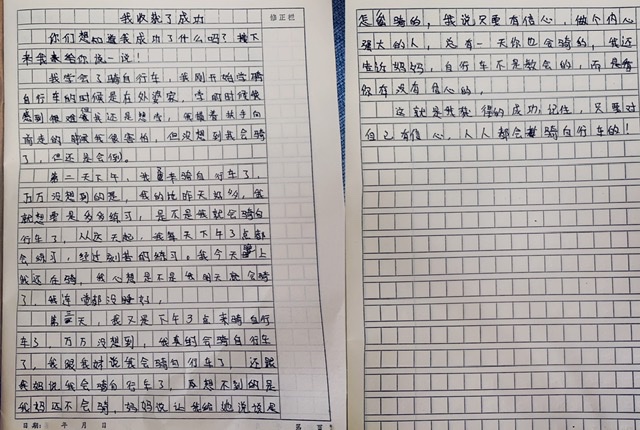 我收获了成功
修正栏
你们想知道我成功了什么吗？接下
来我来给你说一说！
我学会了骑自行车，我刚开始学骑
自行车的时候是在外婆家，学的时候我
感到很难，我还是想学，我握着扶手向
前走的时候我很害怕，但没想到我会骑
了，但还是会倒。
第二天下午，我骑自行车了，
万万没想到的是，我的比昨天好多，我
就想要是多多练习，是不是我就会骑自
行车了，从这天起，我每天下午3点都
会练习，经过刻苦的练习。我今天晚上
我还在骑，我心想是不是我明天就会骑
了，我连觉都没睡好，
第三天，我又是下午3点来骑自行
车了，万万没想到，我真的会骑自行车
了，我跟我妈说我会骑自行车了，还跟
我妈说我会骑自行车了，万想不到的是
我妈还不会骑，妈妈说让我给她说说是
日期： 年 月 日
第 页
怎么骑的，我说只要有信心，做个内心
强大的人，总有一天你也会骑的，我还
告诉妈妈，自行车不是教会的，而是看
你有没有信心的，
这就是我获得的成功，记住，只要对
自己有信心，人人都会骑自行车的！